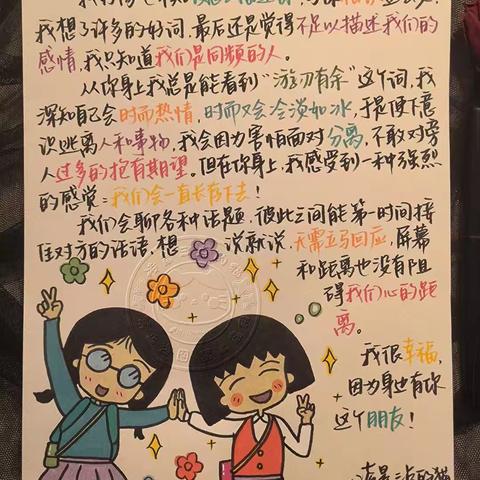 我想了许多的好词,最后还是觉得不足以描述我们的
感情,我只知道我们是同频的人。
从你身上我总是能看到“游刃有余”这个词,我
深知自己会时而热情,时而又会冷淡如冰,于是便下意
识逃离人和事物,我会因为害怕面对分离,不敢对旁
人过多的抱有期望。但在你身上,我感受到一种强烈
的感觉:我们会一直长存下去!
我们会聊各种话题,彼此之间能第一时间接
住对方的话语,想 说就说,无需立马回应,屏幕
和距离也没有阻
碍我们心的距
离。
我很幸福,
因为身边有你
这个朋友!